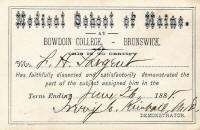 Medical School of Maine.
AT
BOWDOIN COLLEGE, - BRUNSWICK.
THIS IS TO CERTIFY
L. H. Sargent
Has faithfully dissected and satisfactorily demonstrated
the part of the subject assigned him in the
Term Ending June 26 188
Irving E. Kimball, M.D.
DEMONSTRATOR.